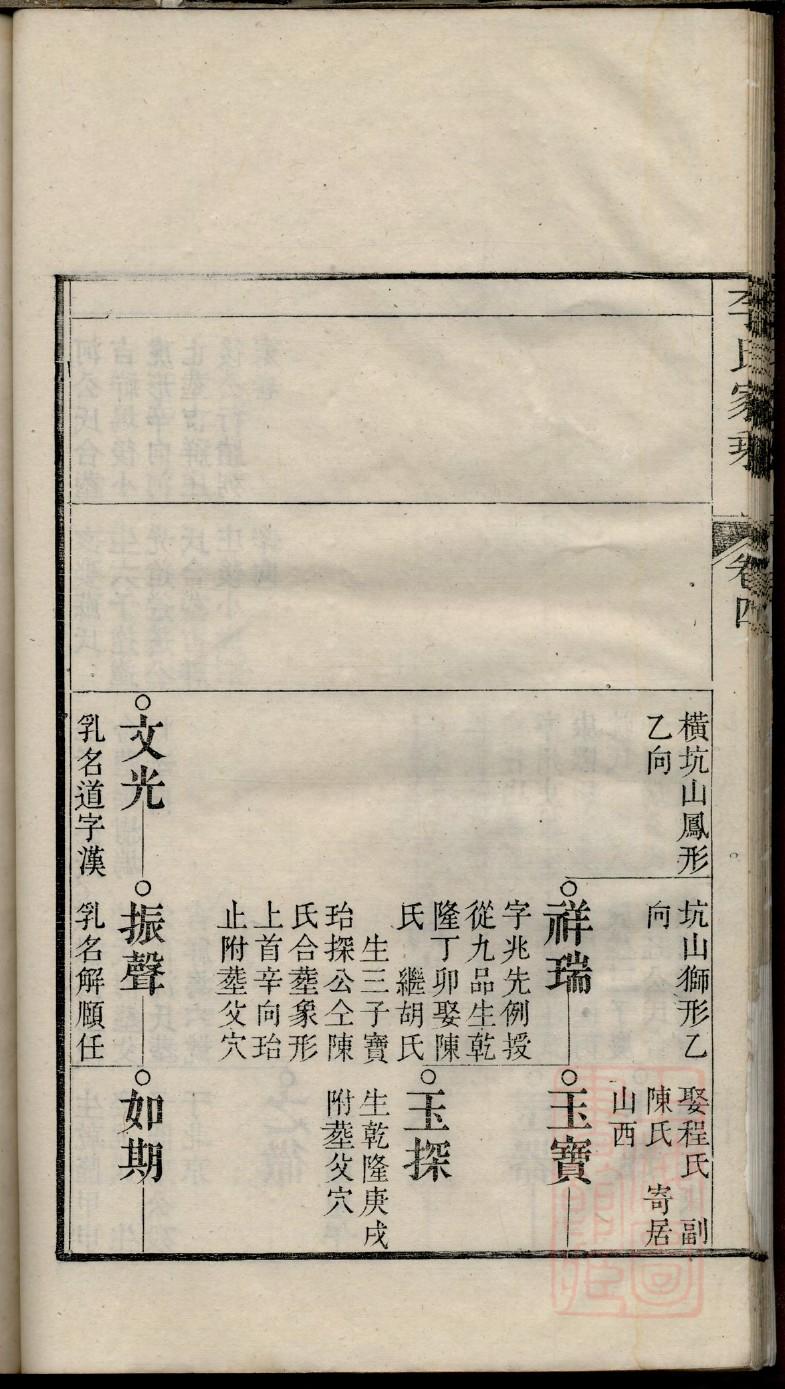 李氏家乘
卷四
橫坑山鳳形
乙向
文光
乳名道字漢
坑山獅形乙
向
祥瑞
字兆先例授
從九品生乾
隆丁卯娶陳
氏 繼胡氏
生三子寶
珆探公仝陳
氏合塟象形
上首辛向珆
止附塟父穴
振聲
乳名解頤任
娶程氏 副
陳氏 寄居
山西
玉寶
玉探
生乾隆庚戌
附塟父穴
如期